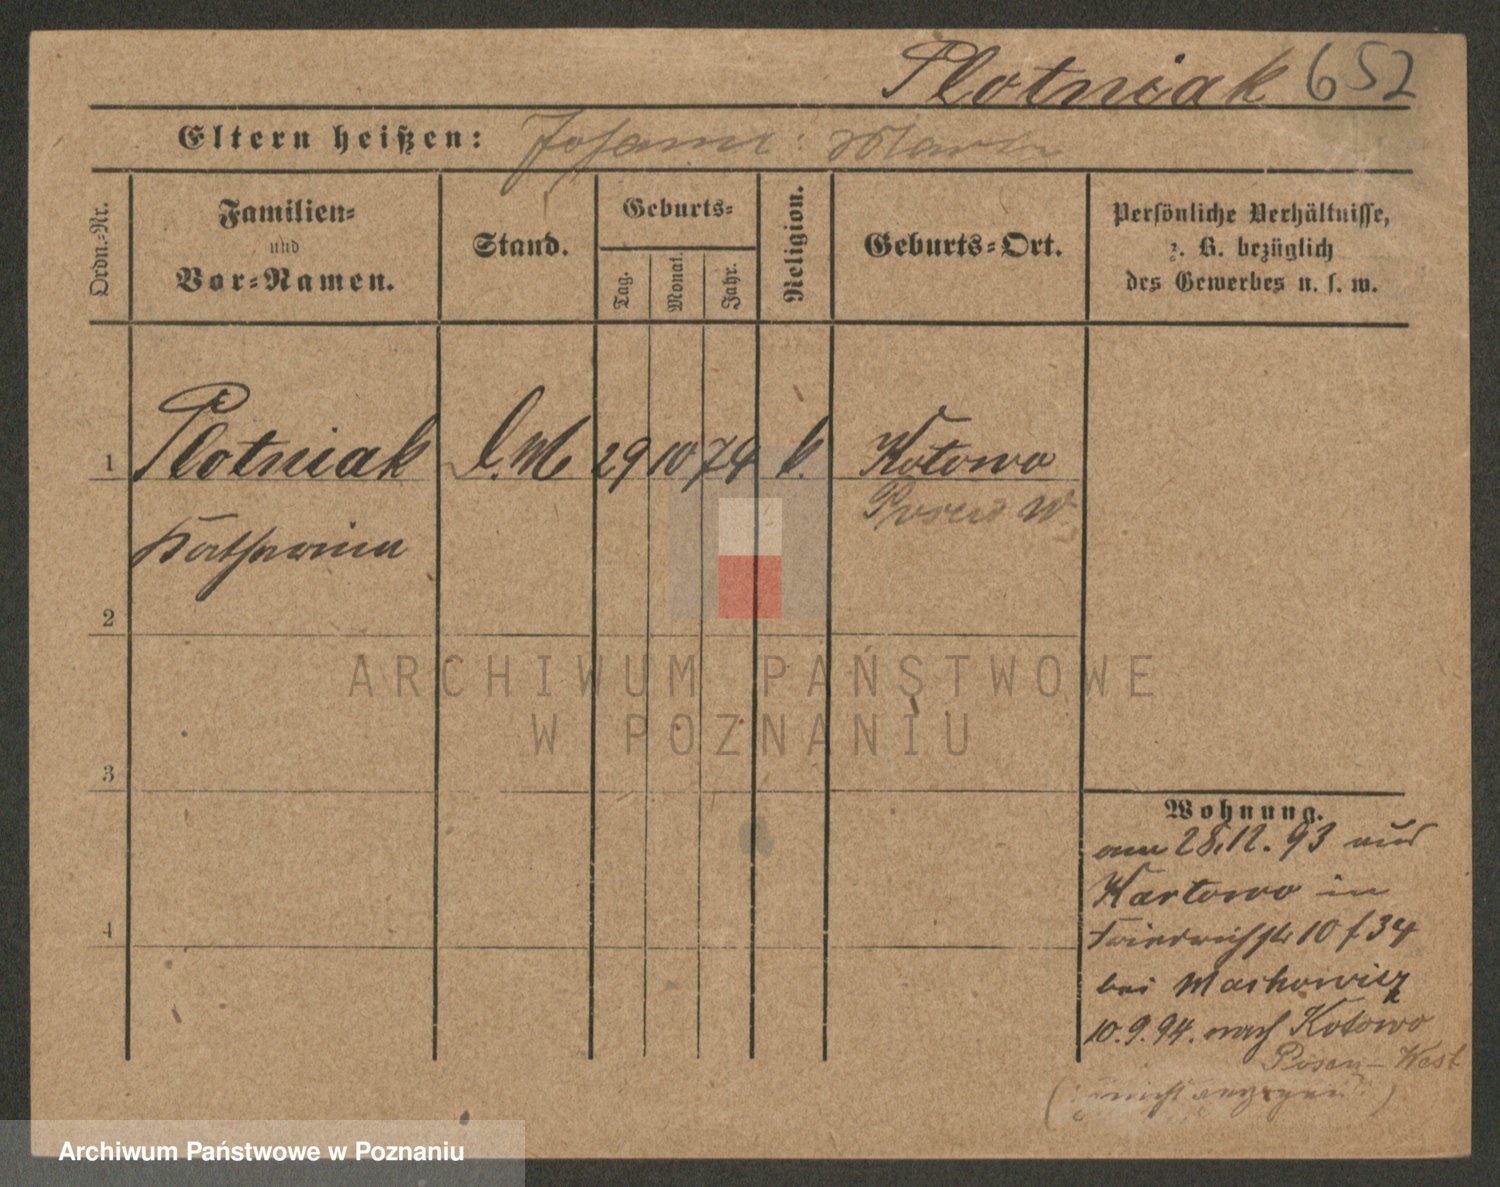 Plotniak 652
Eltern heißen: Johann :
Ordn.-Nr.
Familien-
und
Vor-Namen.
Stand.
Geburts-
Tag.
Monat.
Jahr.
Religion.
Geburts-Ort.
Persönliche Verhältnisse,
z. B. bezüglich
des Gewerbes u. s. w.
1 Plotniak D. M 29 10 74 k. Kotowo
Posen W
Katharina
2
3
4
ARCHIWUM PAŃSTWOWE
W POZNANIU
Wohnung.
am 28.12.93 aus
in
Friedrichstr 10 f 34
bei Markowicz
10.9.94. nach Kotowo
Posen-West
Archiwum Państwowe w Poznaniu